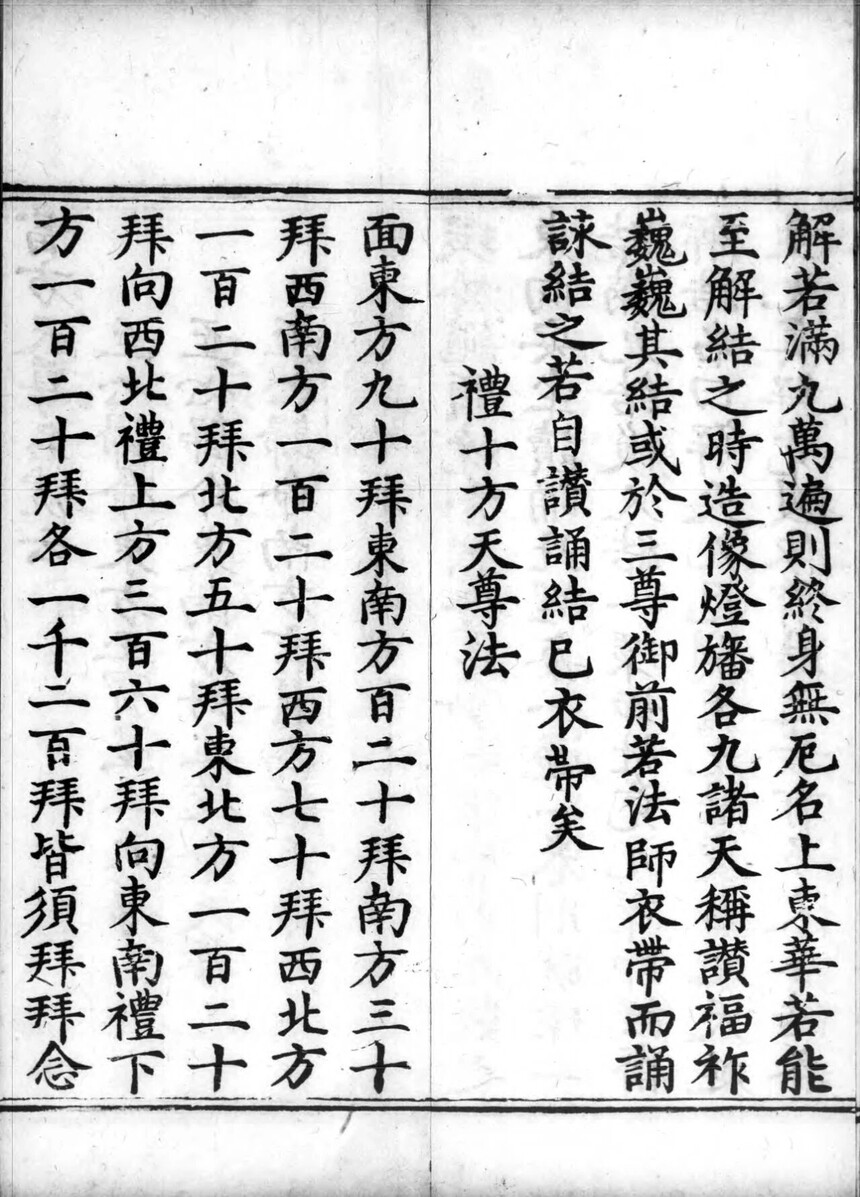 解若滿九萬遍則終身無厄名上東華若能
至解結之時造像燈旛各九諸天稱讃福祚
巍巍其結或於三尊御前若法師衣帶而誦
詠結之若自讃誦結已衣帶矣
禮十方天尊法
面東方九十拜東南方百二十拜南方三十
拜西南方一百二十拜西方七十拜西北方
一百二十拜北方五十拜東北方一百二十
拜向西北禮上方三百六十拜向東南禮下
方一百二十拜各一千二百拜皆須拜拜念